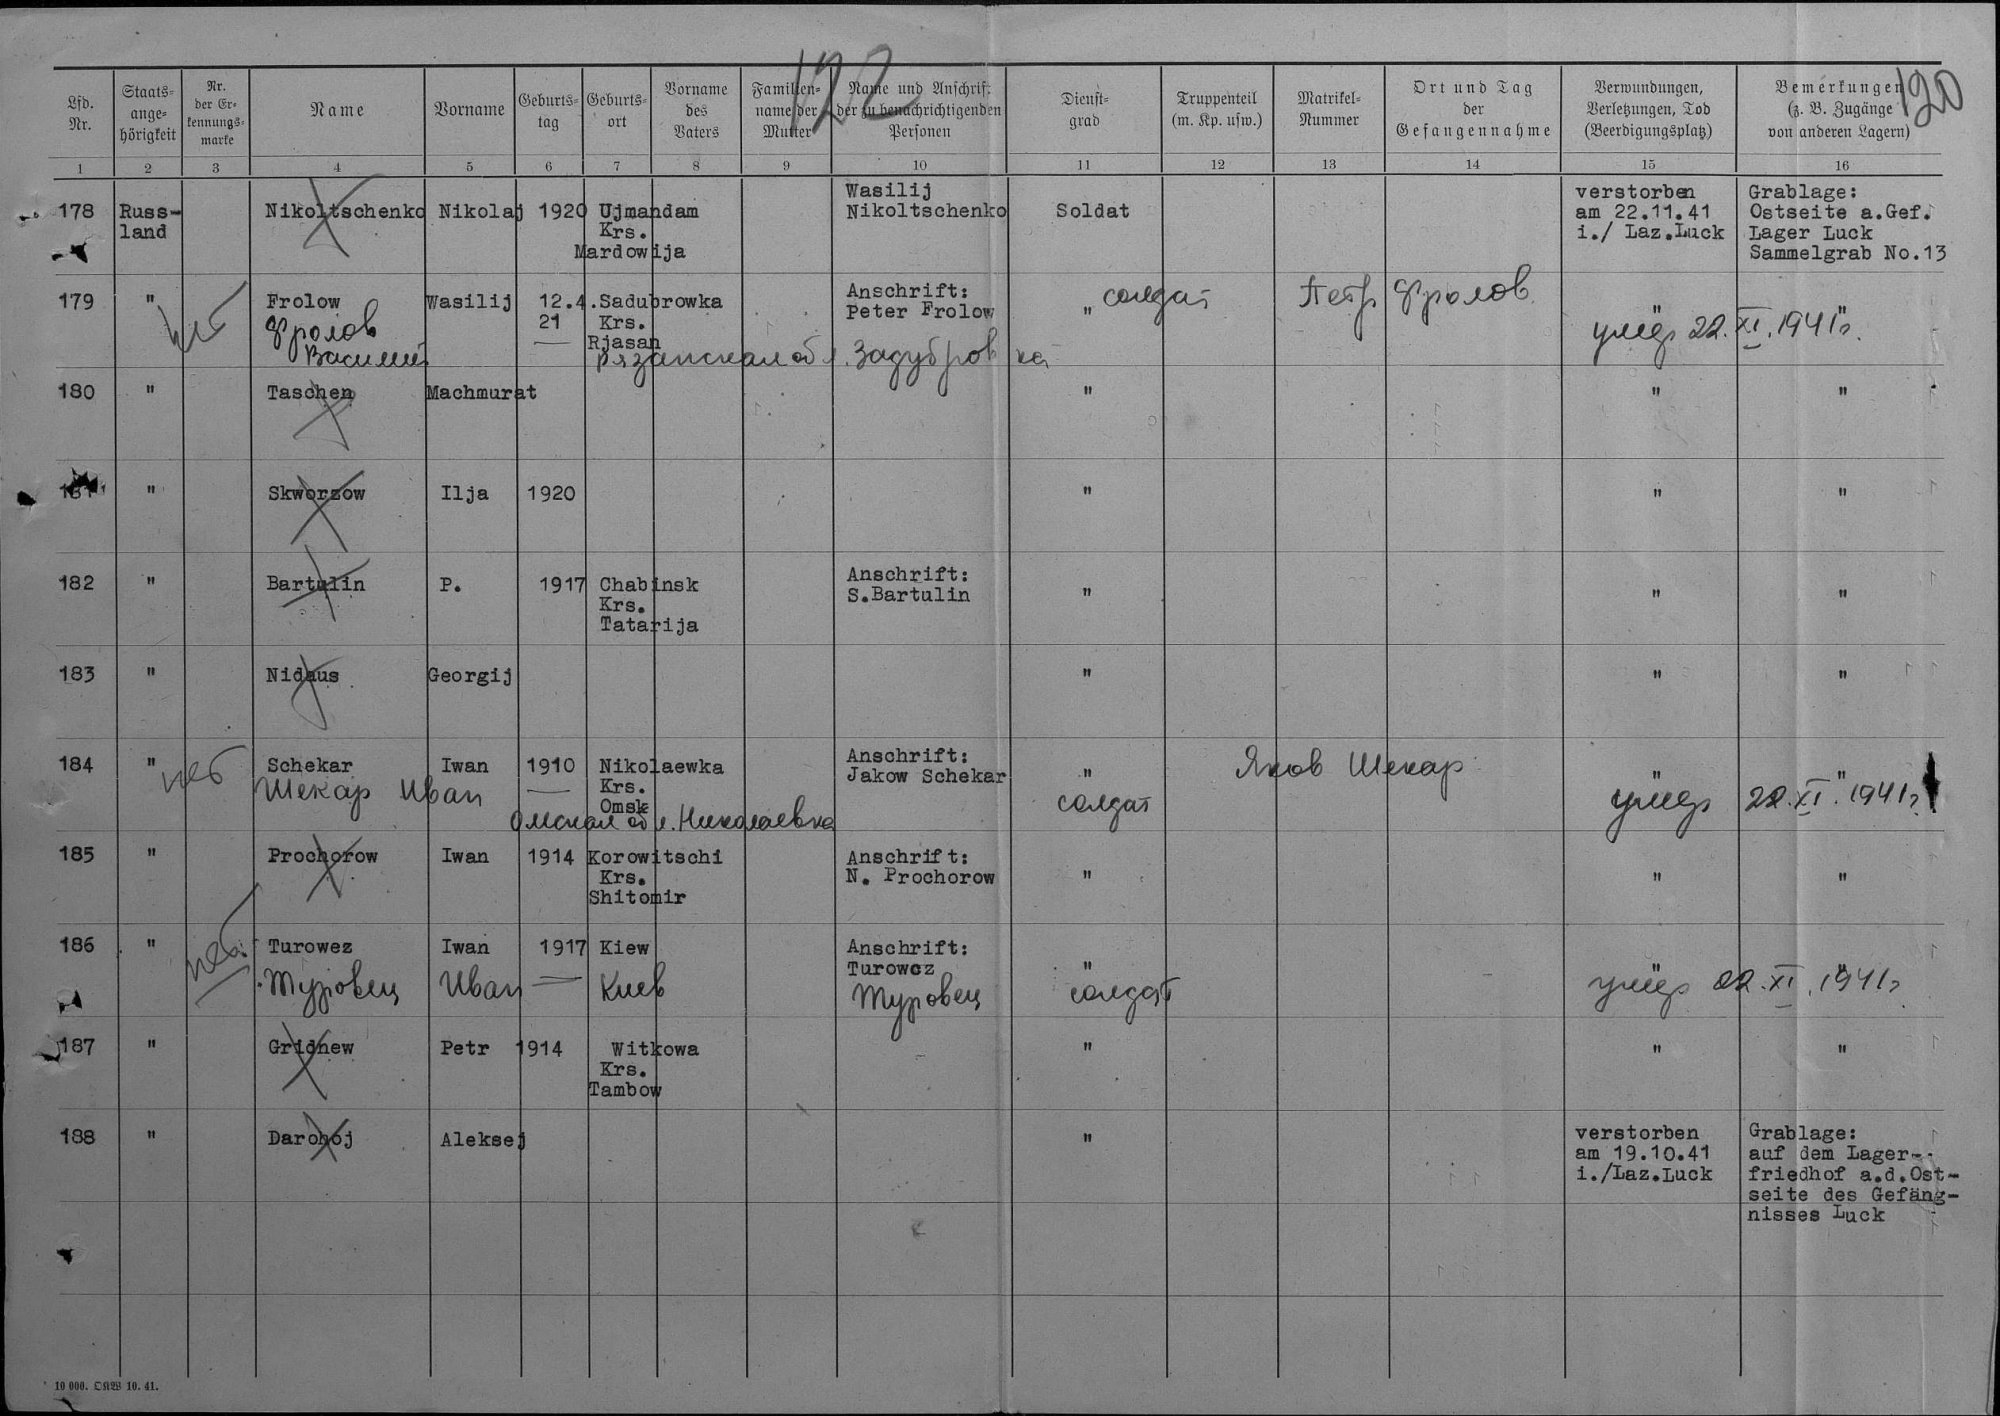 122
120
Lfd. Nr.
Staats-ange-hörigkeit
Nr. der Er-kennungs-marke
Name
Vorname
Geburts-tag
Geburts-ort
Vorname des Vaters
Familien-name der Mutter
Name und Anschrift der zu benachrichtigenden Personen
Dienst-grad
Truppenteil (m. Kp. usw.)
Matrikel-Nummer
Ort und Tag der Gefangennahme
Verwundungen, Verletzungen, Tod (Beerdigungsplatz)
Bemerkungen (z. B. Zugänge von anderen Lagern)
1 2 3 4 5 6 7 8 9 10 11 12 13 14 15 16
178 Russ-land Nikoltschenko Nikolaj 1920 Ujmandam Krs. Mardowija Wasilij Nikoltschenko Soldat verstorben am 22.11.41 i./ Laz.Luck Grablage: Ostseite a.Gef. Lager Luck Sammelgrab No.13
179 " Frolow Wasilij 12.4.21 Sadubrowka Krs. Rjasan Anschrift: Peter Frolow " " "
нет Фролов Василий — Рязанская обл. Задубровка солдат Петр Фролов умер 22.XI.1941г.
180 " Taschen Machmurat " " "
181 " Skworzow Ilja 1920 " " "
182 " Bartulin P. 1917 Chabinsk Krs. Tatarija Anschrift: S.Bartulin " " "
183 " Nidaus Georgij " " "
184 " Schekar Iwan 1910 Nikolaewka Krs. Omsk Anschrift: Jakow Schekar " " "
нет Шекар Иван — Омская обл. Николаевка солдат Яков Шекар умер 22.XI.1941г.
185 " Prochorow Iwan 1914 Korowitschi Krs. Shitomir Anschrift: N. Prochorow " " "
186 " Turowez Iwan 1917 Kiew Anschrift: Turowez " " "
нет Туровец Иван — Киев Туровец солдат умер 22.XI.1941г.
187 " Gridnew Petr 1914 Witkowa Krs. Tambow " " "
188 " Darohoj Aleksej " verstorben am 19.10.41 i./Laz.Luck Grablage: auf dem Lager-friedhof a.d.Ost-seite des Gefäng-nisses Luck
10 000. OKW 10. 41.